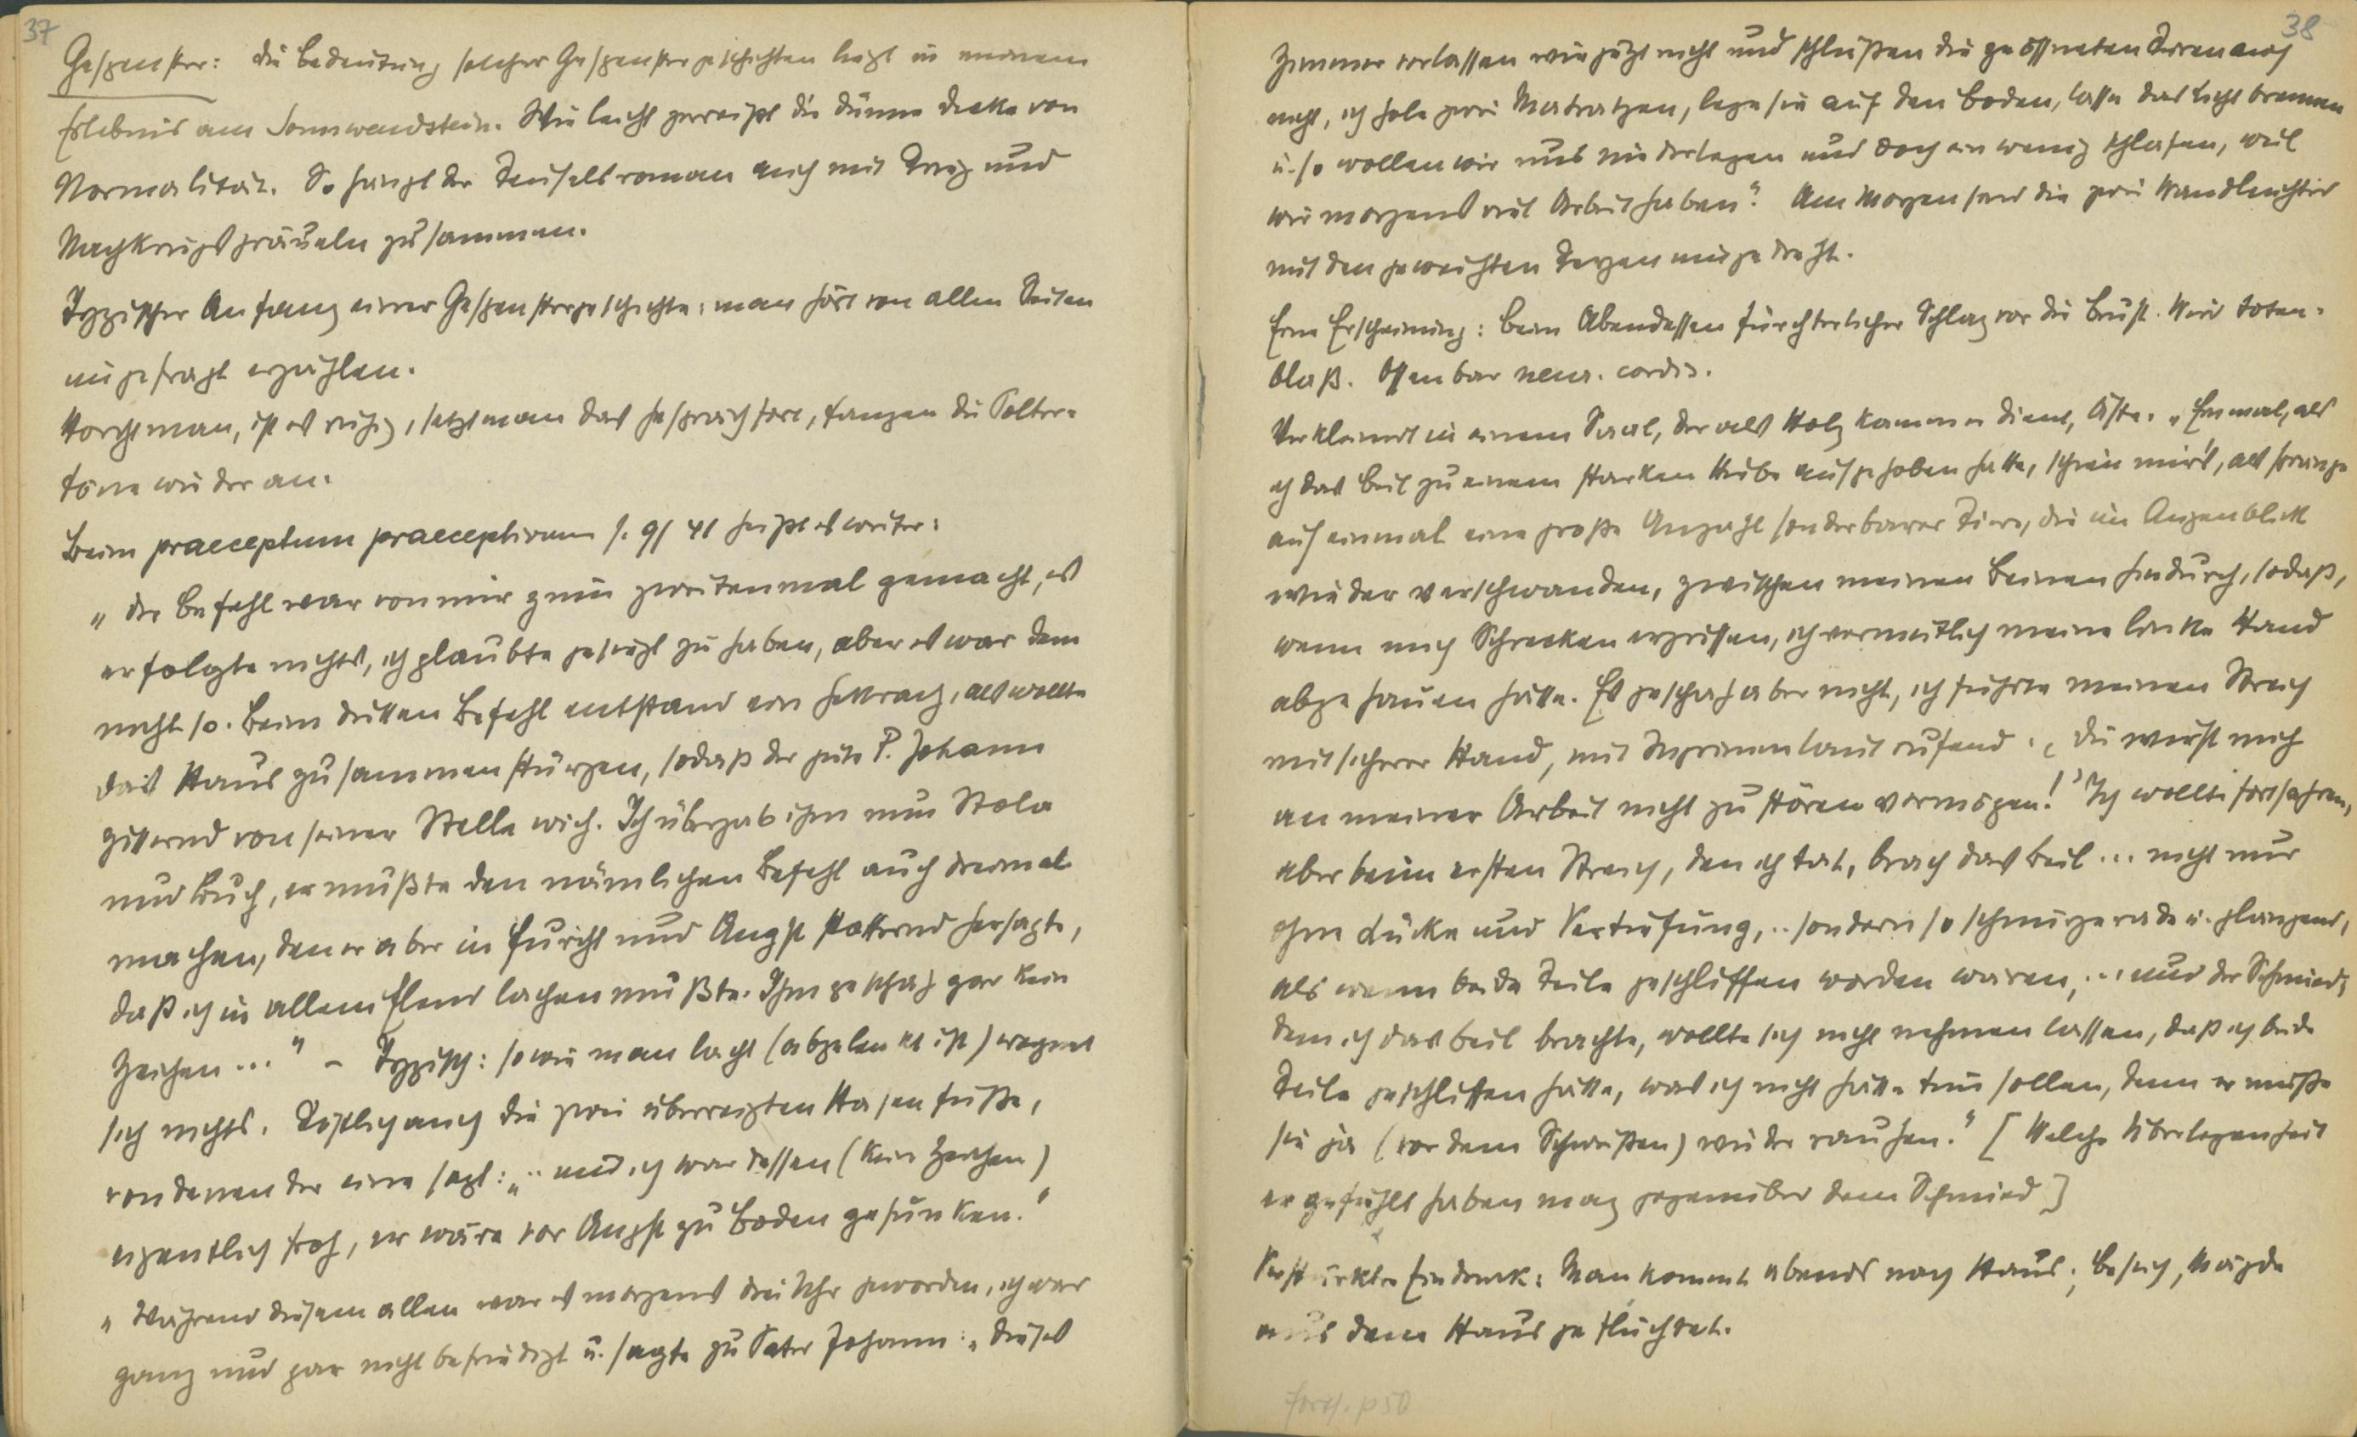 37
Gespenster: die Bedeutung solcher Gespenstergeschichten liegt in meinem
Erlebnis am Sonnwendstein. Wie leicht zerreißt die dünne Decke von
Normalität. So hängt der Teufelsroman auch mit Krieg und
Nachkriegsgräueln zusammen.
Typischer Anfang einer Gespenstergeschichte: man hört von allen Seiten
ungefragt erzählen.
Horcht man, ist es ruhig, setzt man das Gespräch fort, fangen die Polter-
töne wieder an.
Beim praeceptum praeceptivum s. heißt es weiter:
„der Befehl war von mir zum zweitenmal gemacht, es
erfolgte nichts, ich glaubte gesiegt zu haben, aber es war dem
nicht so. Beim dritten Befehl entstand ein Gekrach, als wollte
das Haus zusammenstürzen, sodaß der gute P. Johann
zitternd von seiner Stelle wich. Ich übergab ihm nun Stola
und Buch, er mußte den nämlichen Befehl auch dreimal
machen, den er aber in Furcht und Angst stotternd hersagte,
daß ich in allem Elend lachen mußte. Ihm geschah gar kein
Zeichen ..." – Typisch: sowie man lacht (abgelenkt ist) ereignet
sich nichts. Köstlich auch die zwei überreizten Hasenfüße,
von denen der eine sagt: „.. und ich war dessen (kein Zeichen)
eigentlich froh, er wäre vor Angst zu Boden gesunken."
„Während diesem allen war es morgens drei Uhr geworden, ich war
ganz und gar nicht befriedigt u. sagte zu Pater Johann: „dieses
38
Zimmer verlassen wir jetzt nicht und schließen die geöffneten Türen auch
nicht, ich hole zwei Matratzen, lege sie auf den Boden, lasse das Licht brennen
u. so wollen wir uns niederlegen und doch ein wenig schlafen, weil
wir morgens viel Arbeit haben". Am Morgen sind die zwei Wandleuchter
mit den geweihten Kerzen umgedreht.
Eine Erscheinung: beim Abendessen fürchterlicher Schlag vor die Brust. Wird toten-
blaß. Offenbar neur. cordis.
Verkleinert in einem Saal, der als Holzkammer dient, Äste. „Einmal, als
ich das Beil zu einem starken Hiebe aufgehoben hatte, schien mir's, als springe
auf einmal eine große Anzahl sonderbarer Tiere, die im Augenblick
wieder verschwanden, zwischen meinen Beinen hindurch, sodaß,
wenn mich Schrecken ergriffen, ich vermutlich meine linke Hand
abgehauen hätte. Es geschah aber nicht, ich führte meinen Streich
mit sicherer Hand, mit Ingrimm laut rufend: ‚Du wirst mich
an meiner Arbeit nicht zu stören vermögen!' Ich wollte fortfahren,
aber beim ersten Streich, den ich tat, brach das Beil ... nicht nur
ohne Lücke und Vertiefung, .. sondern so schnurgerade u. glänzend,
als wenn beide Teile geschliffen worden wären, ... und der Schmied,
dem ich das Beil brachte, wollte sich nicht nehmen lassen, daß ich beide
Teile geschliffen hätte, was ich nicht hätte tun sollen, denn er müßte
sie ja (vor dem Schweißen) wieder rauhen." [Welche Überlegenheit
er gefühlt haben mag gegenüber dem Schmied]
Verstärkter Eindruck: Man kommt abends nach Haus; Besuch, Mägde
aus dem Haus geflüchtet.
forts. p 50